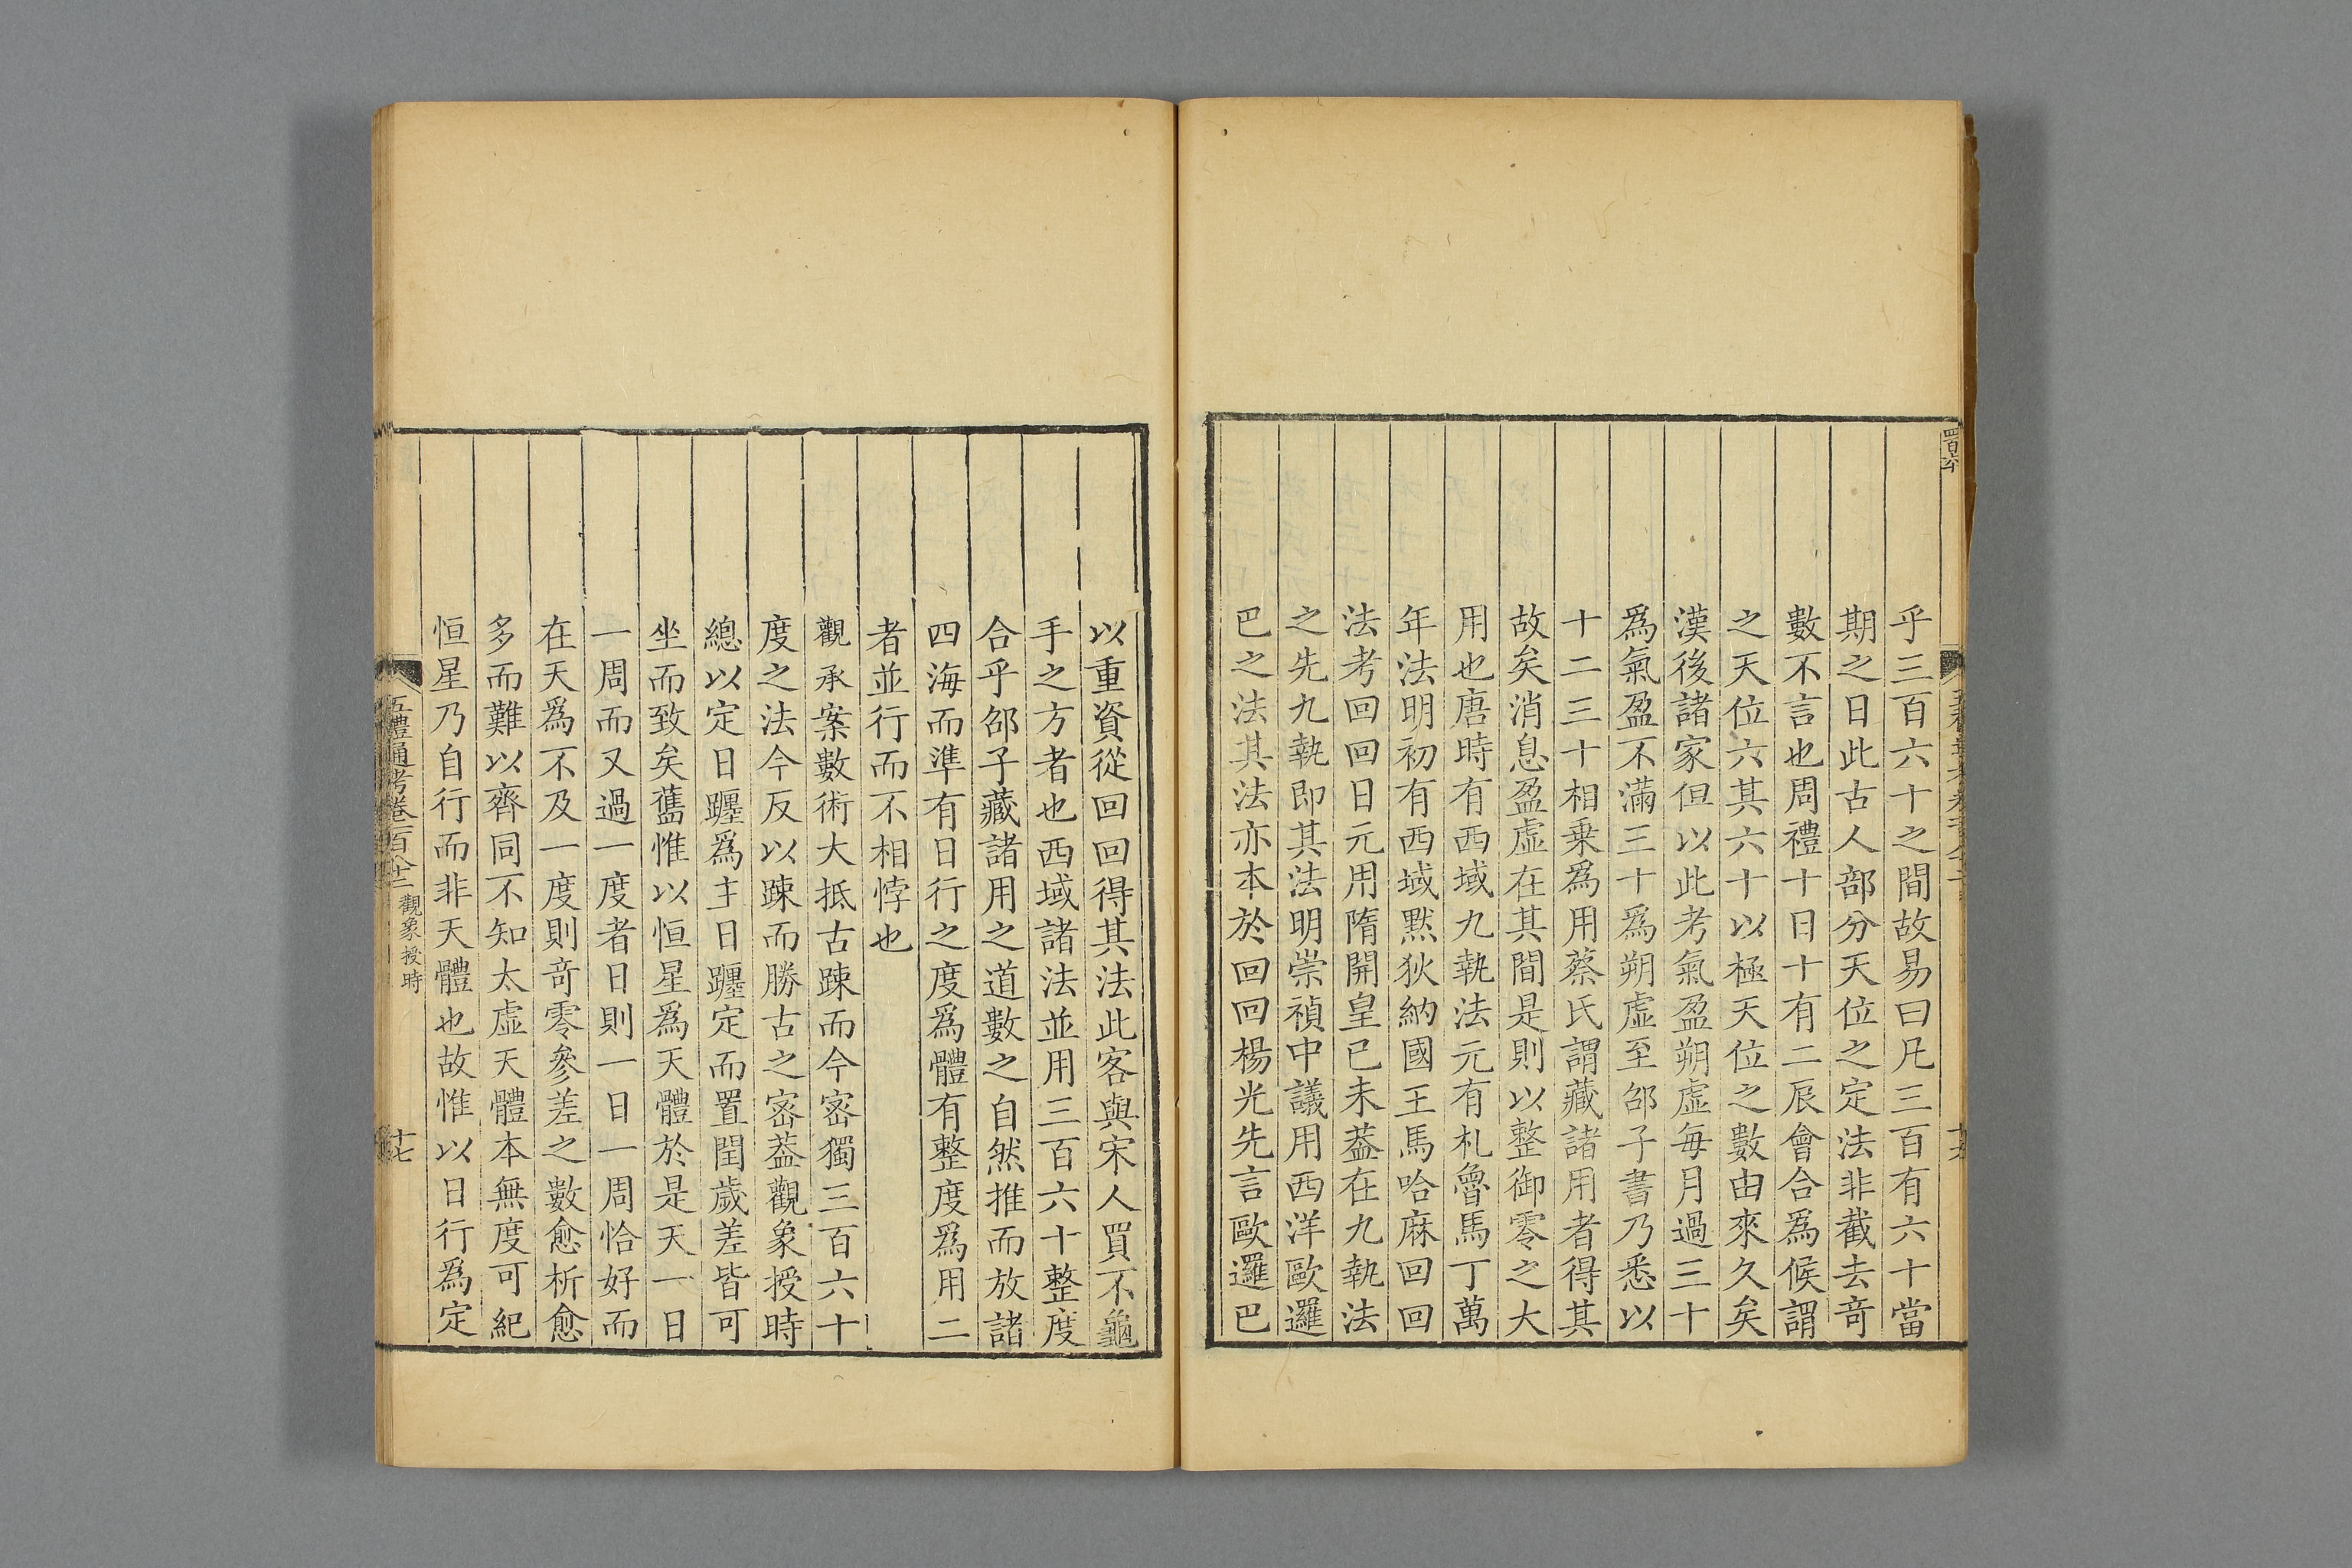 乎三百六十之間故易曰凡三百有六十當
期之日此古人部分天位之定法非截去竒
數不言也周禮十日十有二辰會合爲候謂
之天位六其六十以極天位之數由來久矣
漢後諸家但以此考氣盈朔虛每月過三十
爲氣盈不滿三十爲朔虛至邵子書乃悉以
十二三十相乗爲用蔡氏謂藏諸用者得其
故矣消息盈虛在其間是則以整御零之大
用也唐時有西域九執法元有札魯馬丁萬
年法明初有西域黙狄納國王馬哈麻回回
法考回回日元用隋開皇已未葢在九執法
之先九執即其法明崇禎中議用西洋歐邏
巴之法其法亦本於回回楊光先言歐邏巴
以重資從回回得其法此客與宋人買不龜
手之方者也西域諸法並用三百六十整度
合乎邵子藏諸用之道數之自然推而放諸
四海而準有日行之度爲體有整度爲用二
者並行而不相悖也
觀承案數術大抵古踈而今宻獨三百六十
度之法今反以踈而勝古之宻葢觀象授時
總以定日躔爲主日躔定而置閏歲差皆可
坐而致矣舊惟以恒星爲天體於是天一日
一周而又過一度者日則一日一周恰好而
在天爲不及一度則竒零參差之數愈析愈
多而難以齊同不知太虛天體本無度可紀
恒星乃自行而非天體也故惟以日行爲定
五禮通考卷一百八十二 觀象授時
十七